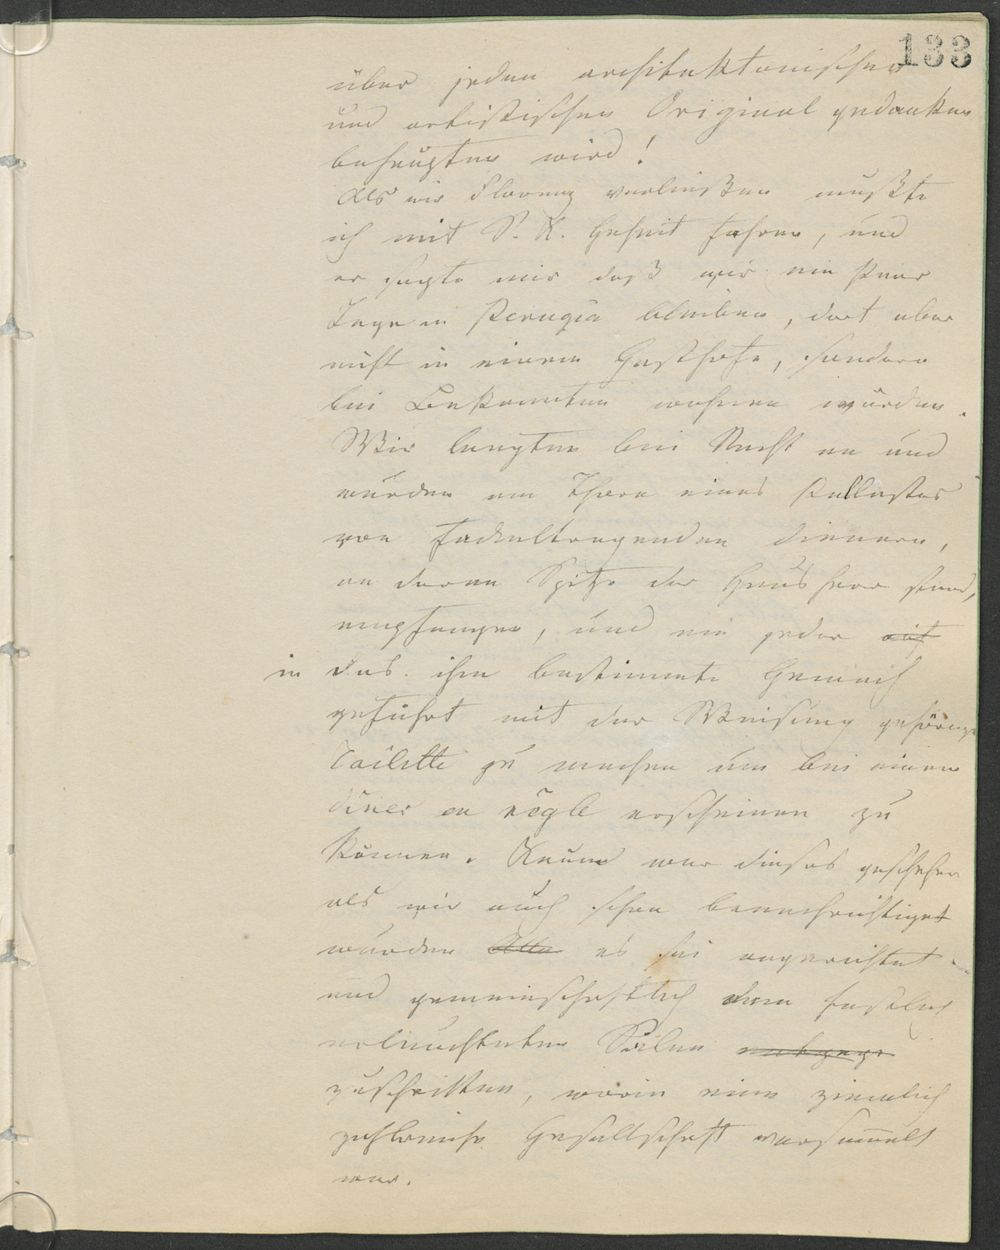 133
über jeden architektonischen
und artistischen Original gedanken
behaupten wird!
Als wir Florenz verließen mußte
ich mit S. K. Hoheit fahren, und
er sagte mir daß wir ein Paar
Tage in Perugia bleiben, dort aber
nicht in einem Gasthofe, sondern
bei Bekannten wohnen würden.
Wir langten bei Nacht an und
wurden am Thore eines Pallastes
von fackeltragenden Dienern,
an deren Spitze der Hausherr stand,
empfangen, und ein jeder
in das ihm bestimmte Gemach
geführt mit der Weisung gehörige
Toilette zu machen um bei einem
diner en règle erscheinen zu
können. Kaum war dieses geschehen
als wir auch schon benachrichtiget
wurden es sei angerichtet
und gemeinschaftlich den festlich
erleuchteten Sälen
zuschritten, worin eine ziemlich
zahlreiche Gesellschaft versammelt
war.